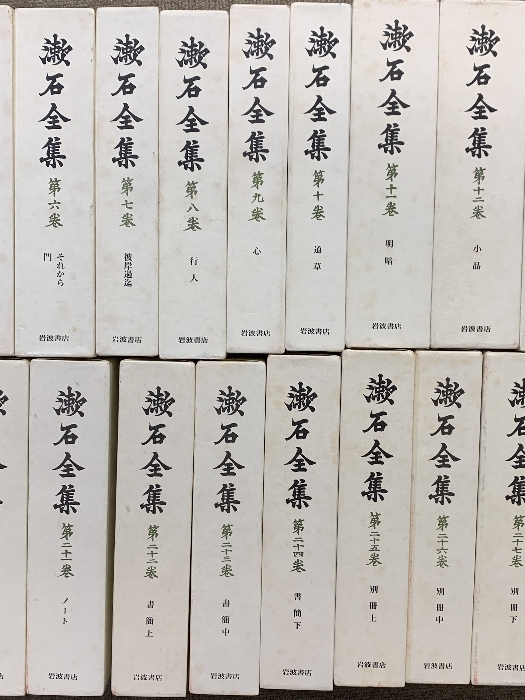 漱石全集
第六巻
それから
門
岩波書店
漱石全集
第七巻
彼岸過迄
岩波書店
漱石全集
第八巻
行人
岩波書店
漱石全集
第九巻
心
岩波書店
漱石全集
第十巻
道草
岩波書店
漱石全集
第十一巻
明暗
岩波書店
漱石全集
第十二巻
小品
岩波書店
漱石全集
第二十一巻
ノート
岩波書店
漱石全集
第二十二巻
書簡上
岩波書店
漱石全集
第二十三巻
書簡中
岩波書店
漱石全集
第二十四巻
書簡下
岩波書店
漱石全集
第二十五巻
別冊上
岩波書店
漱石全集
第二十六巻
別冊中
岩波書店
漱石全集
第二十七巻
別冊下
岩波書店